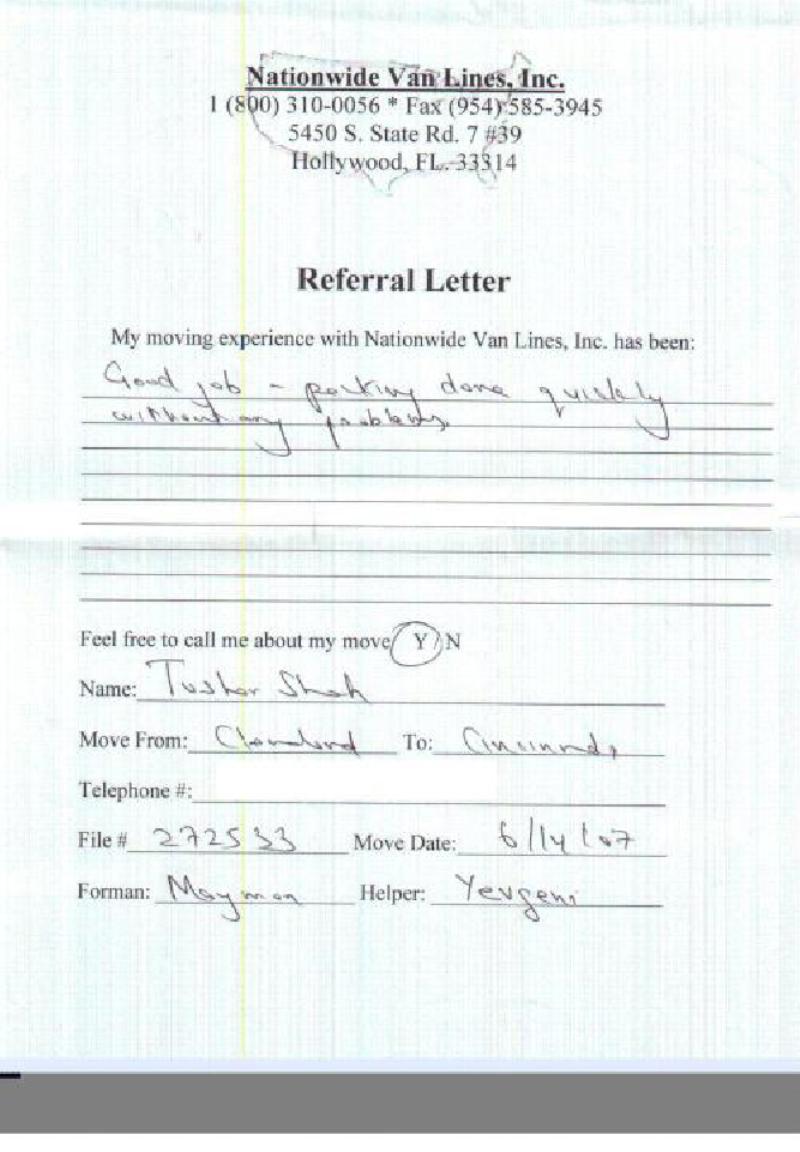 Nationwide Van Lines, Inc.
1 (800) 310-0056 * Fax (954) 585-3945
5450 S. State Rd. 7 #39
Hollywood, FL. 33314
Referral Letter
My moving experience with Nationwide Van Lines, Inc. has been:
Good job - packing done quickly
without any problems.
Feel free to call me about my move Y / N
Name: Tushar Shah
Move From: Cleveland To: Cincinnati
Telephone #:
File # 272533 Move Date: 6/14/07
Forman: Mayman Helper: Yevgeni